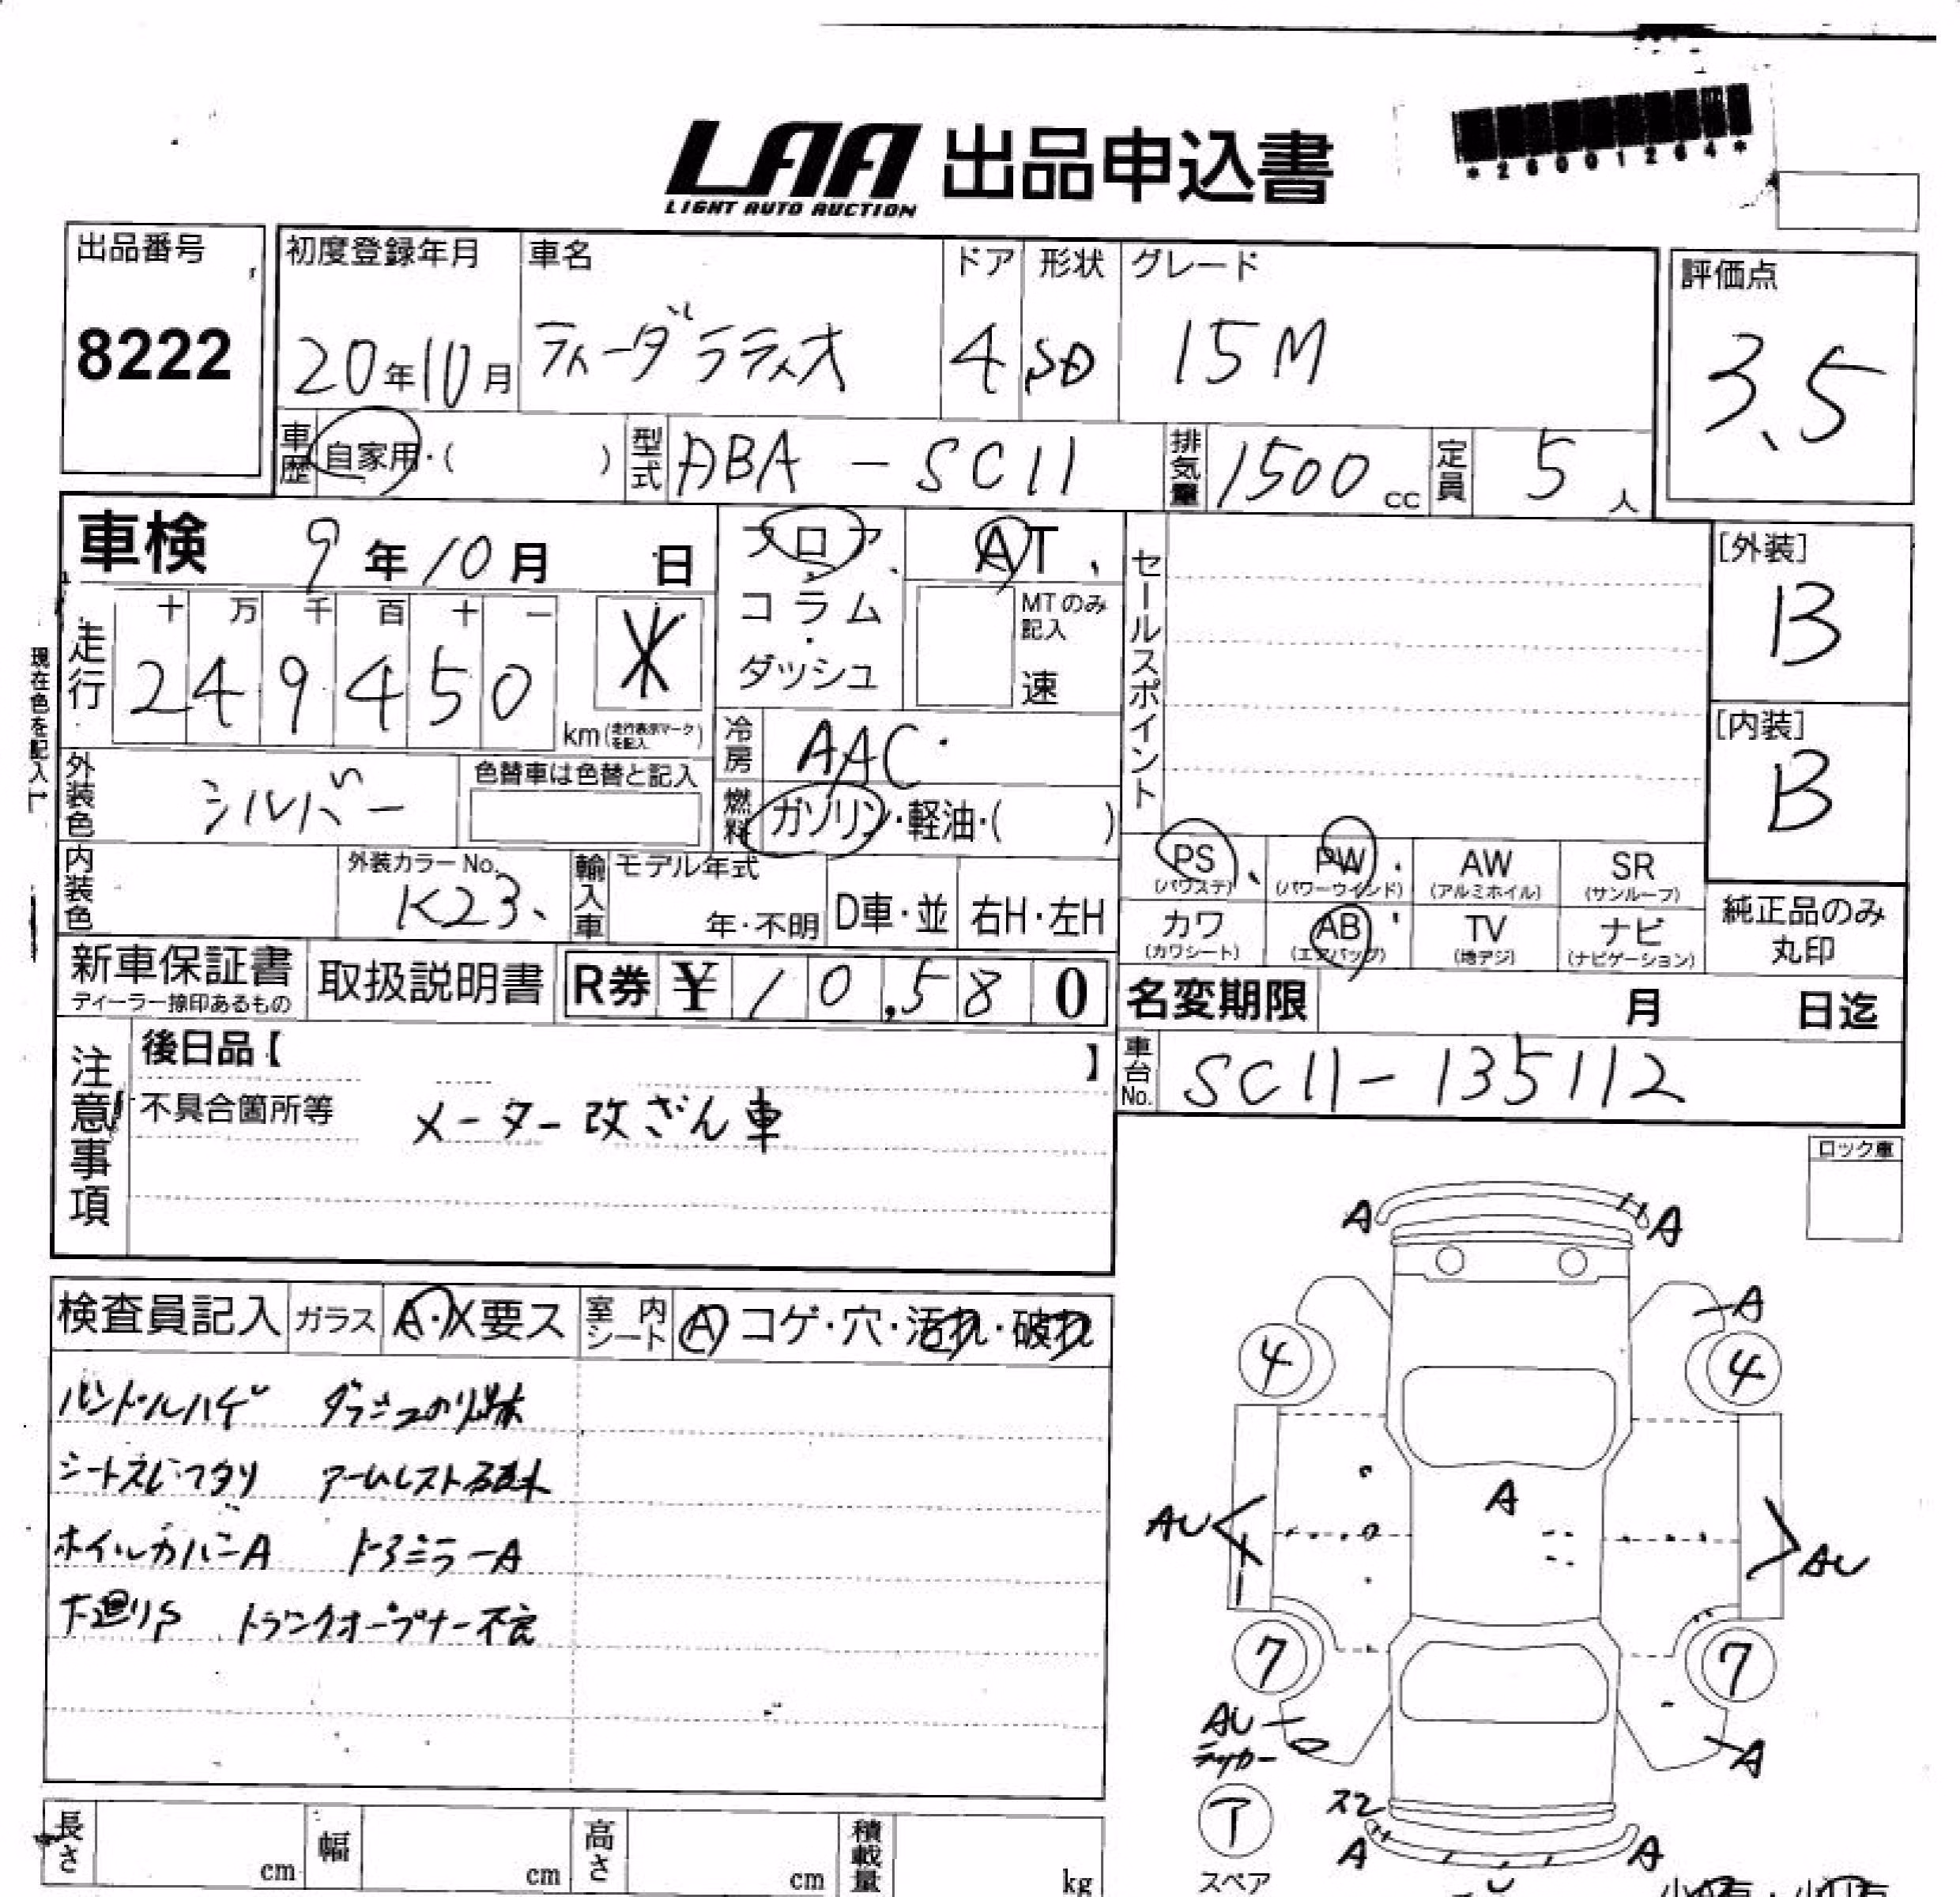 LAA 出品申込書
LIGHT AUTO AUCTION
*26001264*
出品番号
8222
初度登録年月
20年10月
車名
ティーダラティオ
ドア
4
形状
SD
グレード
15M
評価点
3.5
車歴
自家用・( )
型式
ABA-SC11
排気量
1500cc
定員
5人
車検 9年10月 日
フロア
コラム
・
ダッシュ
AT
MTのみ記入
速
セールスポイント
[外装]
B
現在色を記入
走行
十 万 千 百 十 一
2 4 9 4 5 0
km(走行表示マークを記入)
冷房
AAC
[内装]
B
外装色
シルバー
色替車は色替と記入
燃料
ガソリン・軽油・( )
内装色
外装カラーNo.
K23
輸入車
モデル年式
年・不明
D車・並
右H・左H
PS
(パワステ)
PW
(パワーウインド)
AW
(アルミホイル)
SR
(サンルーフ)
カワ
(カワシート)
AB
(エアバッグ)
TV
(地デジ)
ナビ
(ナビゲーション)
純正品のみ
丸印
新車保証書
ディーラー捺印あるもの
取扱説明書
R券 ¥10,580
名変期限 月 日迄
注意事項
後日品【 】
不具合箇所等 メーター改ざん車
車台No.
SC11-135112
ロック車
検査員記入
ガラス
A・X要ス
室内シート
A コゲ・穴・汚れ・破れ
ハンドルハゲ ダッシュのり跡
シートスレ・フタリ アームレスト破れ
ホイルカバーA ドアミラーA
下廻りS トランクオープナー不良
A A
A
4 4
A
AU AU
7 7
AU
A
ア
スペア
A A
長さ cm
幅 cm
高さ cm
積載量 kg